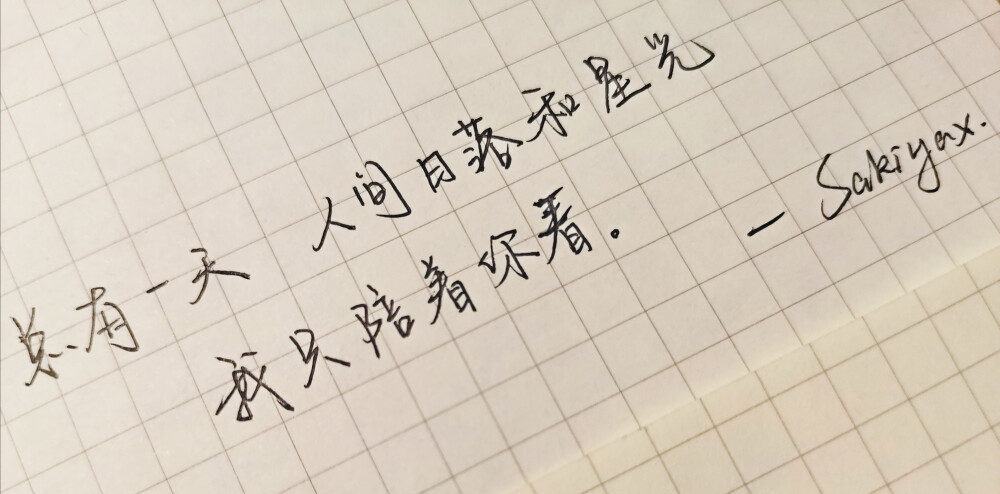 总有一天 人间日落和星光
我只陪着你看。 — Sakiyax.